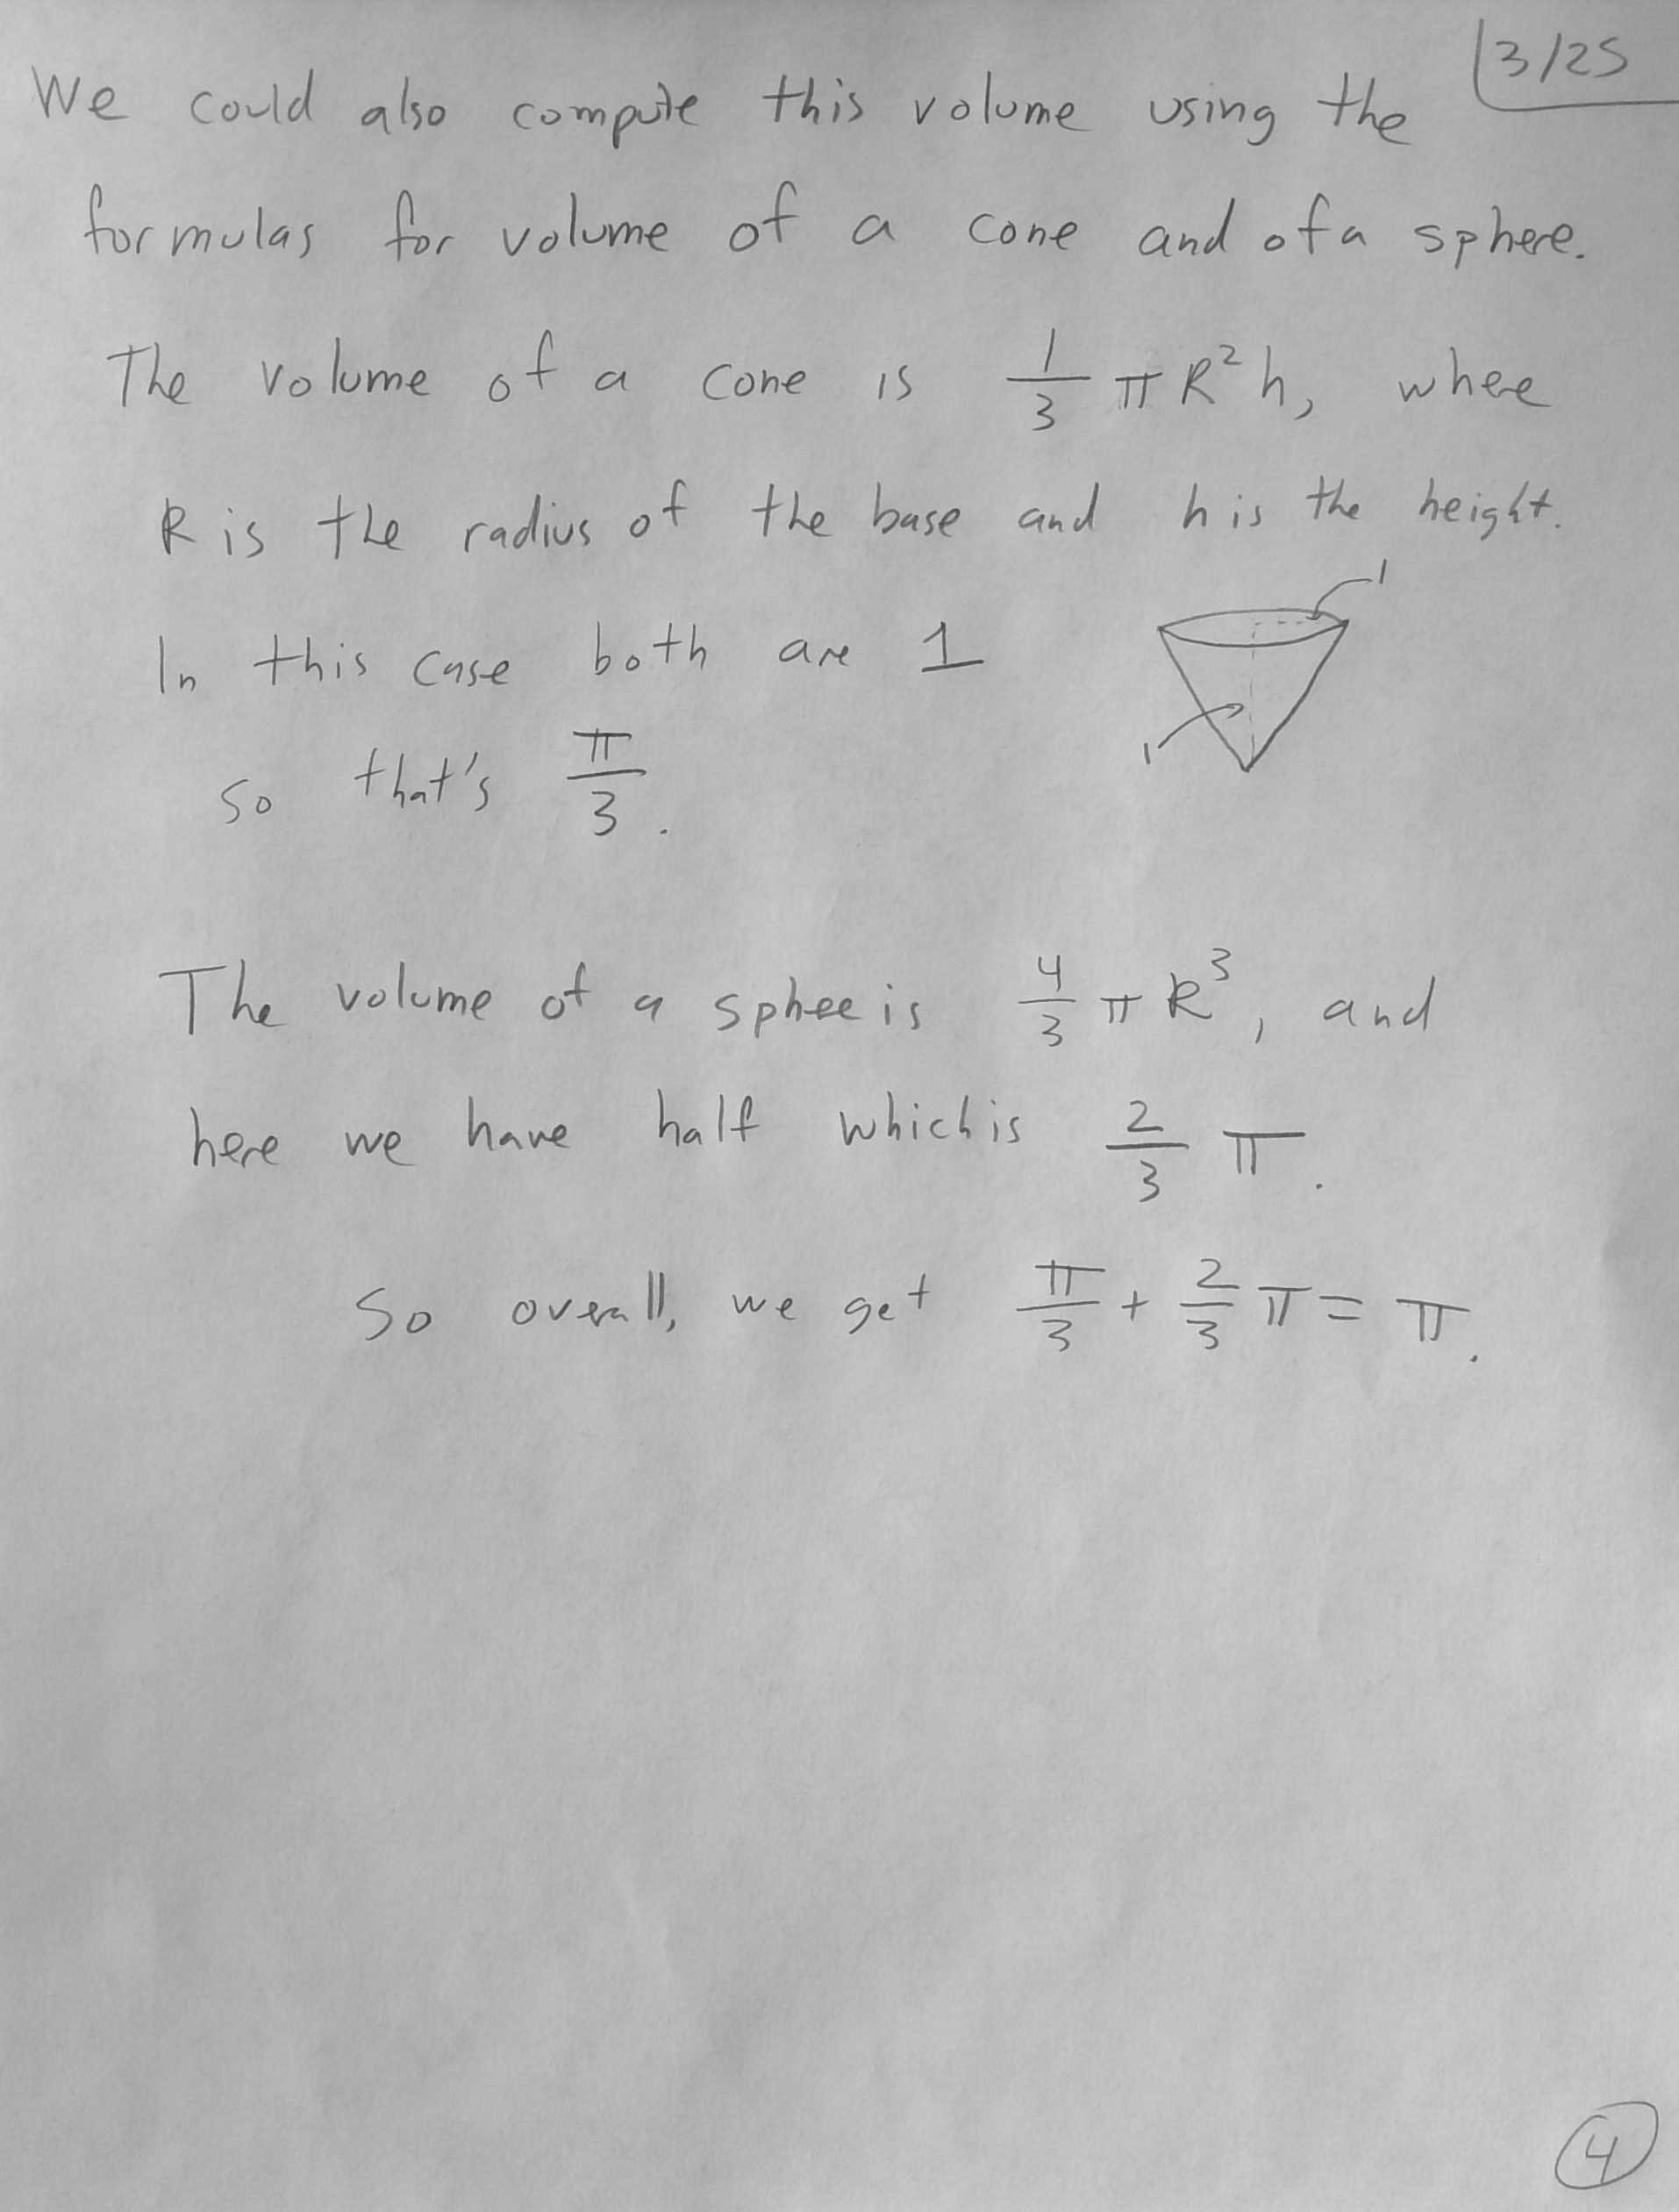 3/25
We could also compute this volume using the
formulas for volume of a cone and of a sphere.
The volume of a cone is 1/3 π R² h, where
R is the radius of the base and h is the height.
1
In this case both are 1
1
so that's π/3.
The volume of a sphee is 4/3 π R³, and
here we have half which is 2/3 π.
So overall, we get π/3 + 2/3 π = π.
4